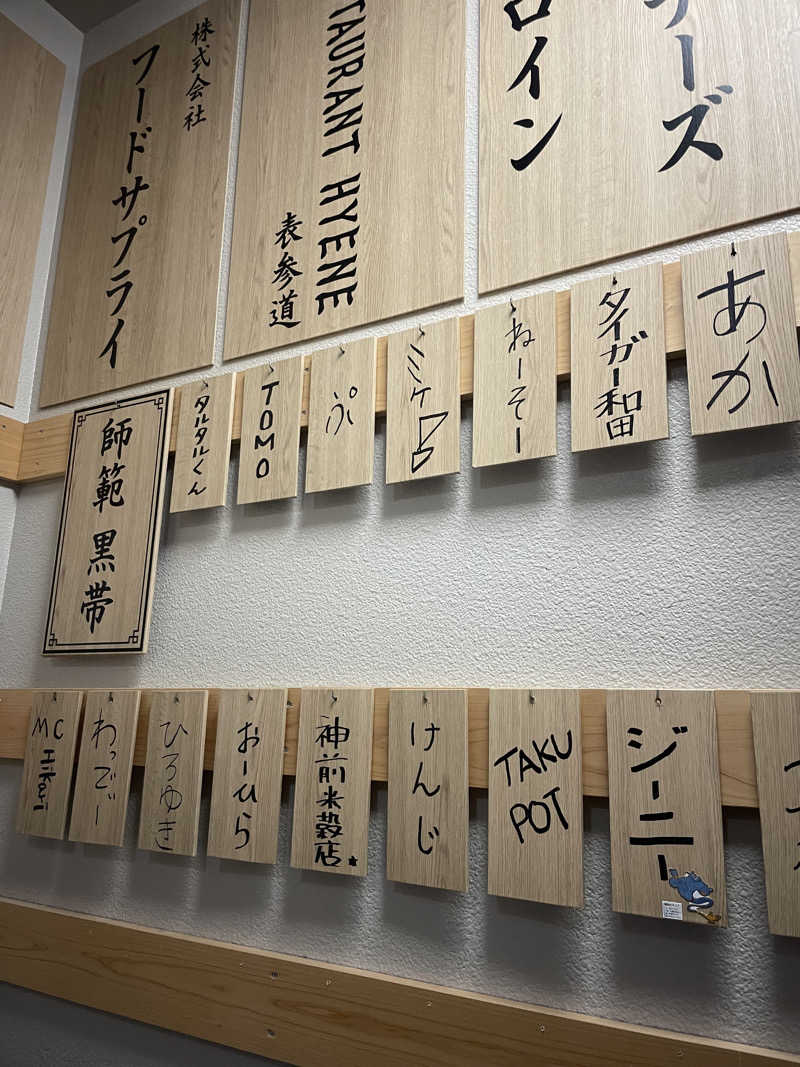 株式会社
フードサプライ
TAURANT HYENE
表参道
ロイン
ーズ
師範 黒帯
タルタルくん
TOMO
ぷ
ミミケ
ねーそー
タイガー和田
あか
MC
わっでぃー
ひろゆき
おーひら
神前米穀店
けんじ
TAKU
POT
ジーニー